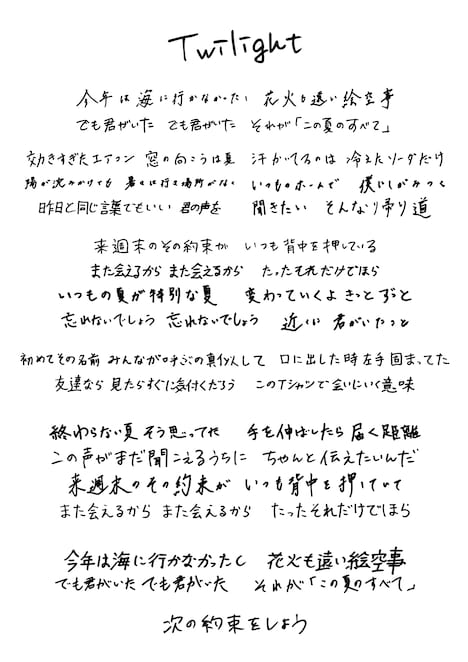 Twilight
今年は海に行かなかったし 花火も遠い絵空事
でも君がいた でも君がいた それが「この夏のすべて」
効きすぎたエアコン 窓の向こうは夏 汗かいてるのは 冷えたソーダだけ
陽が沈みかけても 暑さは行き場所がなく いつものホームで 僕にしがみつく
昨日と同じ言葉でもいい 君の声を 聞きたい そんな帰り道
来週末のその約束が いつも背中を押している
また会えるから また会えるから たったそれだけでほら
いつもの夏が特別な夏 変わっていくよ きっとずっと
忘れないでしょう 忘れないでしょう 近くに 君がいたこと
初めてその名前 みんなが呼ぶの真似して 口に出した時 を手固まってた
友達なら 見たらすぐに気付くだろう このTシャツで会いにいく意味
終わらない夏 そう思ってた 手を伸ばしたら 届く距離
この声がまだ聞こえるうちに ちゃんと伝えたいんだ
来週末のその約束が いつも背中を押していて
また会えるから また会えるから たったそれだけでほら
今年は海に行かなかったし 花火も遠い絵空事
でも君がいた でも君がいた それが「この夏のすべて」
次の約束をしよう